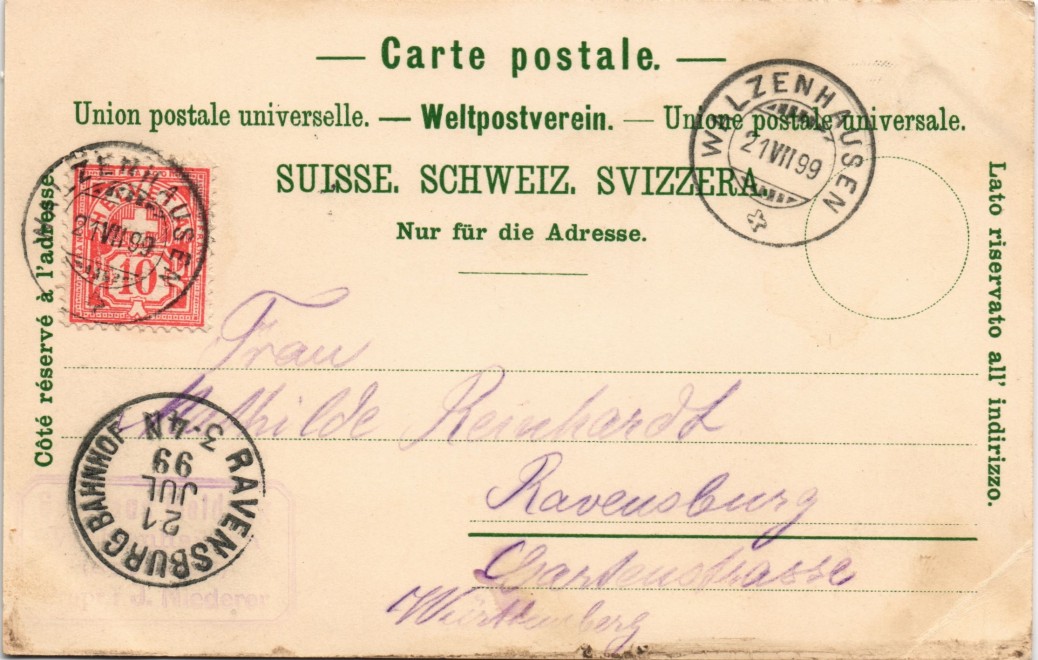 — Carte postale. —
Union postale universelle. — Weltpostverein. — Unione postale universale.
SUISSE. SCHWEIZ. SVIZZERA.
Nur für die Adresse.
Côté réservé à l'adresse.
Lato riservato all' indirizzo.
WALZENHAUSEN
21 VII 99
WALZENHAUSEN
21 VII 99
10
Frau
Mathilde Reinhardt
Ravensburg
Gartenstrasse
Württemberg
RAVENSBURG BAHNHOF
21
JUL
99
3-4 N
J. Niederer